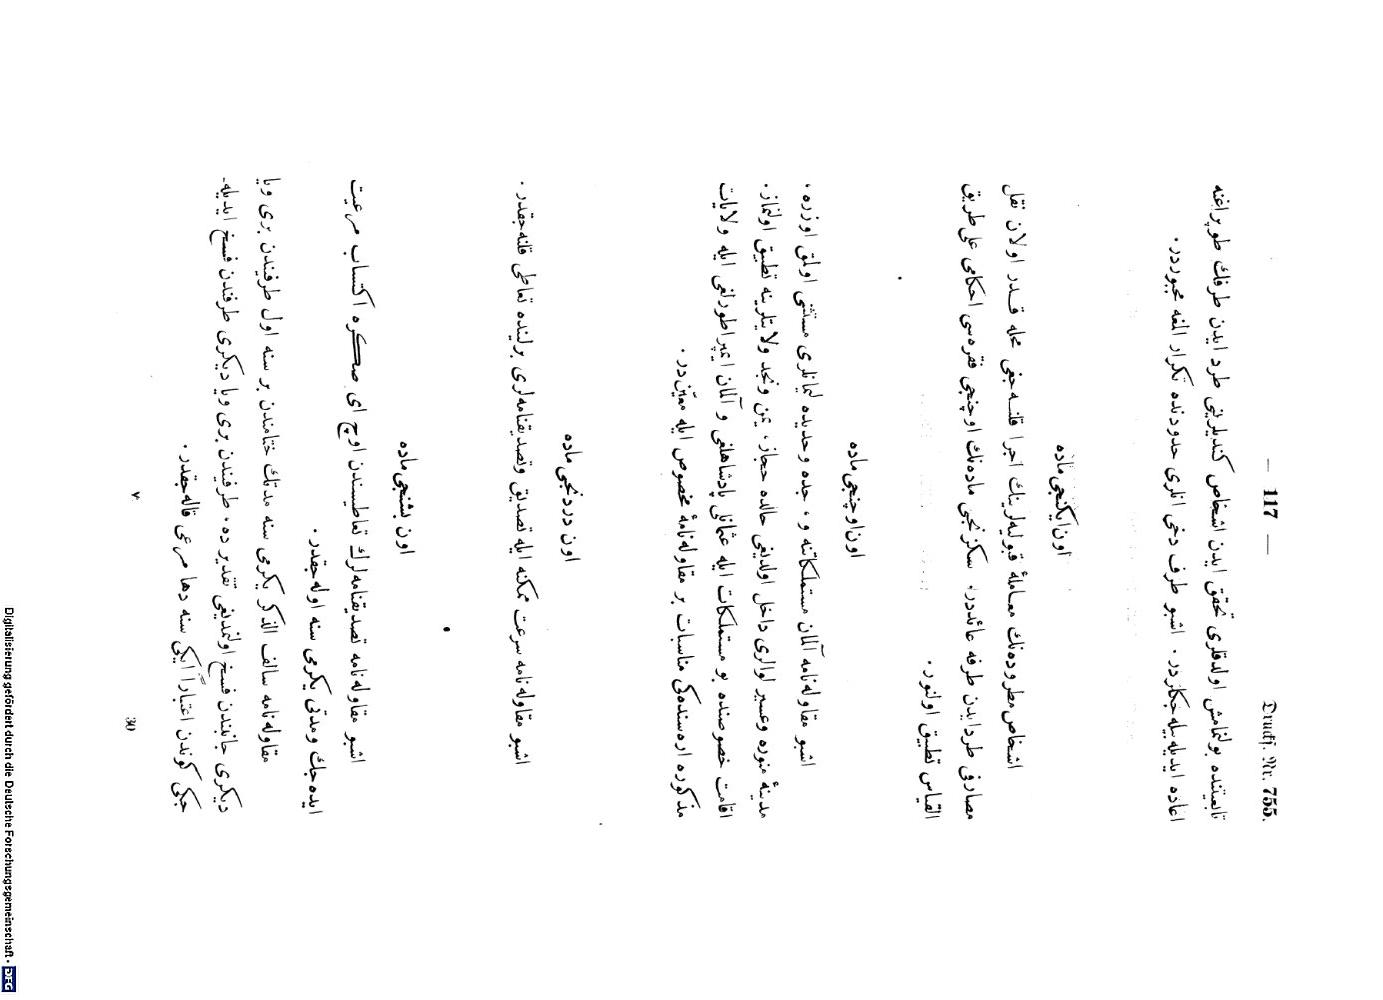 — 117 —
Drucks. Nr. 755.
تابعیتنده بولنمامش اولدقلری تحقق ایدن اشخاص کندیلرینی طرد ایدن طرفك طوپراغنه
اعاده ایدیله بیله جکلردر . اشبو طرف دخی انلری حدودنده تکرار الغه مجبوردر .
اون ایکنجی ماده
اشخاص مطروده نك معاملۀ قبولیه لرینك اجرا قلنه جغی محله قدر اولان نقل
مصارفی طرد ایدن طرفه عائددر . سکزنجی ماده نك اوچنجی فقره سی احکامی علی طریق
القیاس تطبیق اولنور .
اون اوچنجی ماده
اشبو مقاوله نامه آلمان مستملکاتنه و ، جده وحدیده لیمانلری مستثنی اولمق اوزره ،
مدینۀ منوره وعسیر لوالری داخل اولدیغی حالده حجاز ، یمن ونجد ولایتلرینه تطبیق اولنماز .
اقامت خصوصنده بو مستملکات ایله عثمانلی پادشاهلغی و آلمان ایمپراطورلغی ایله ولایات
مذکوره اره سنده کی مناسبات بر مقاوله نامۀ مخصوص ایله معین در .
اون دردنجی ماده
اشبو مقاوله نامه سرعت ممکنه ایله تصدیق وتصدیقنامه لری برلینده تعاطی قلنه جقدر .
اون بشنجی ماده
اشبو مقاوله نامه تصدیقنامه لرك تعاطیسندن اوچ ای صکره اکتساب مرعیت
ایده جك ومدتی یکرمی سنه اوله جقدر .
مقاوله نامه سالف الذکر یکرمی سنه مدتك ختامندن بر سنه اول طرفیندن بری ویا
دیکری جانبندن فسخ اولنمدیغی تقدیرده ، طرفیندن بری ویا دیکری طرفندن فسخ ایدیله ـ
جکی کوندن اعتباراً ایکی سنه دها مرعی قاله جقدر .
٧
30
Digitalisierung gefördert durch die Deutsche Forschungsgemeinschaft - DFG